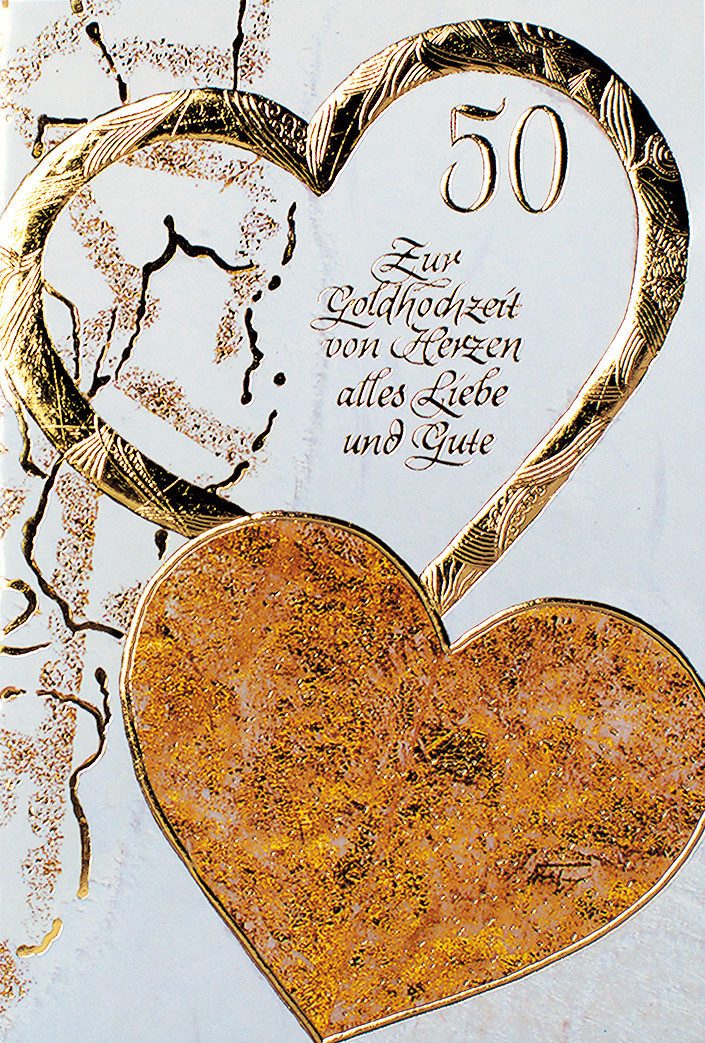 50
Zur
Goldhochzeit
von Herzen
alles Liebe
und Gute